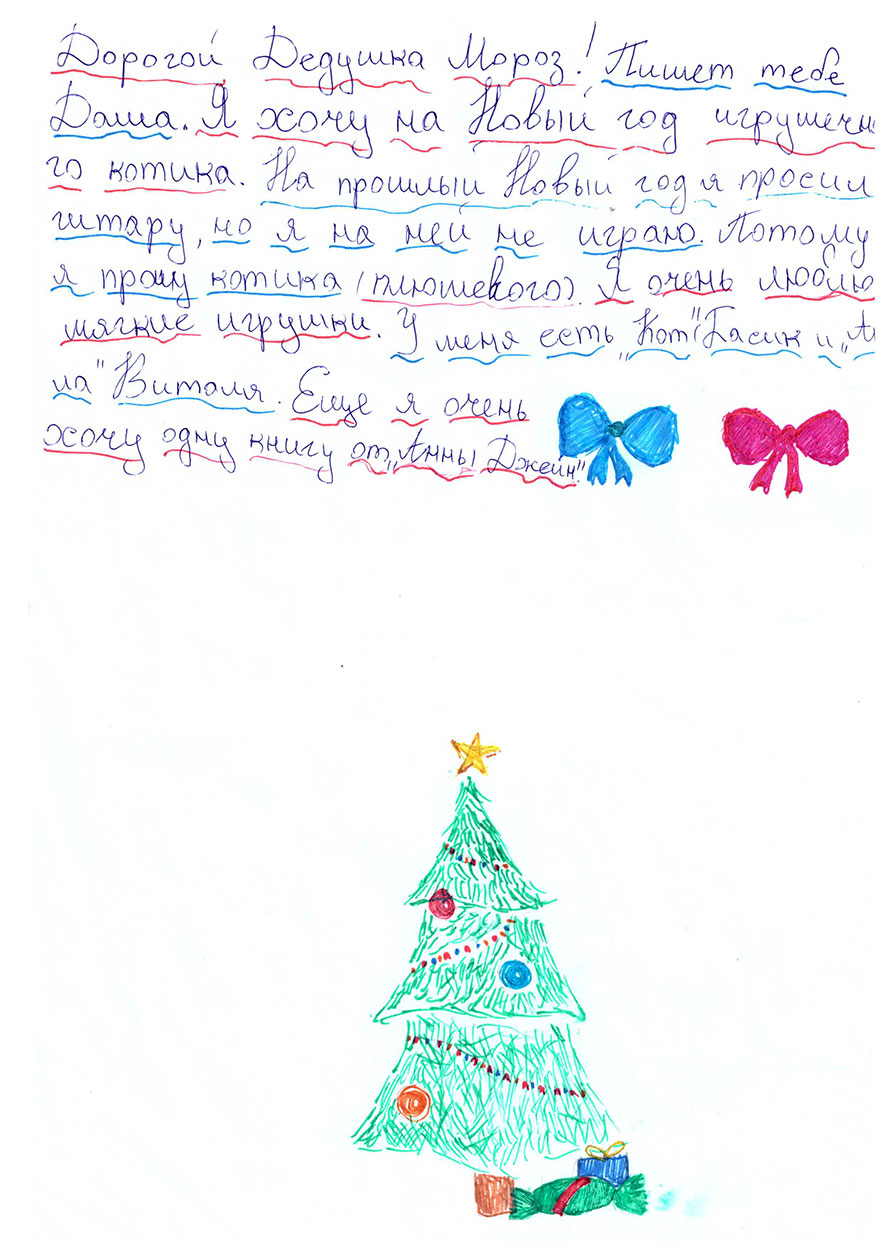 Дорогой Дедушка Мороз! Пишет тебе
Даша. Я хочу на Новый год игрушечн
го котика. На прошлый Новый год я просил
гитару, но я на ней не играю. Потому
я прошу котика (плюшевого). Я очень люблю
мягкие игрушки. У меня есть „Кот" Басик и „
ла" Виталя. Еще я очень
хочу одну книгу от „Анны Джейн".